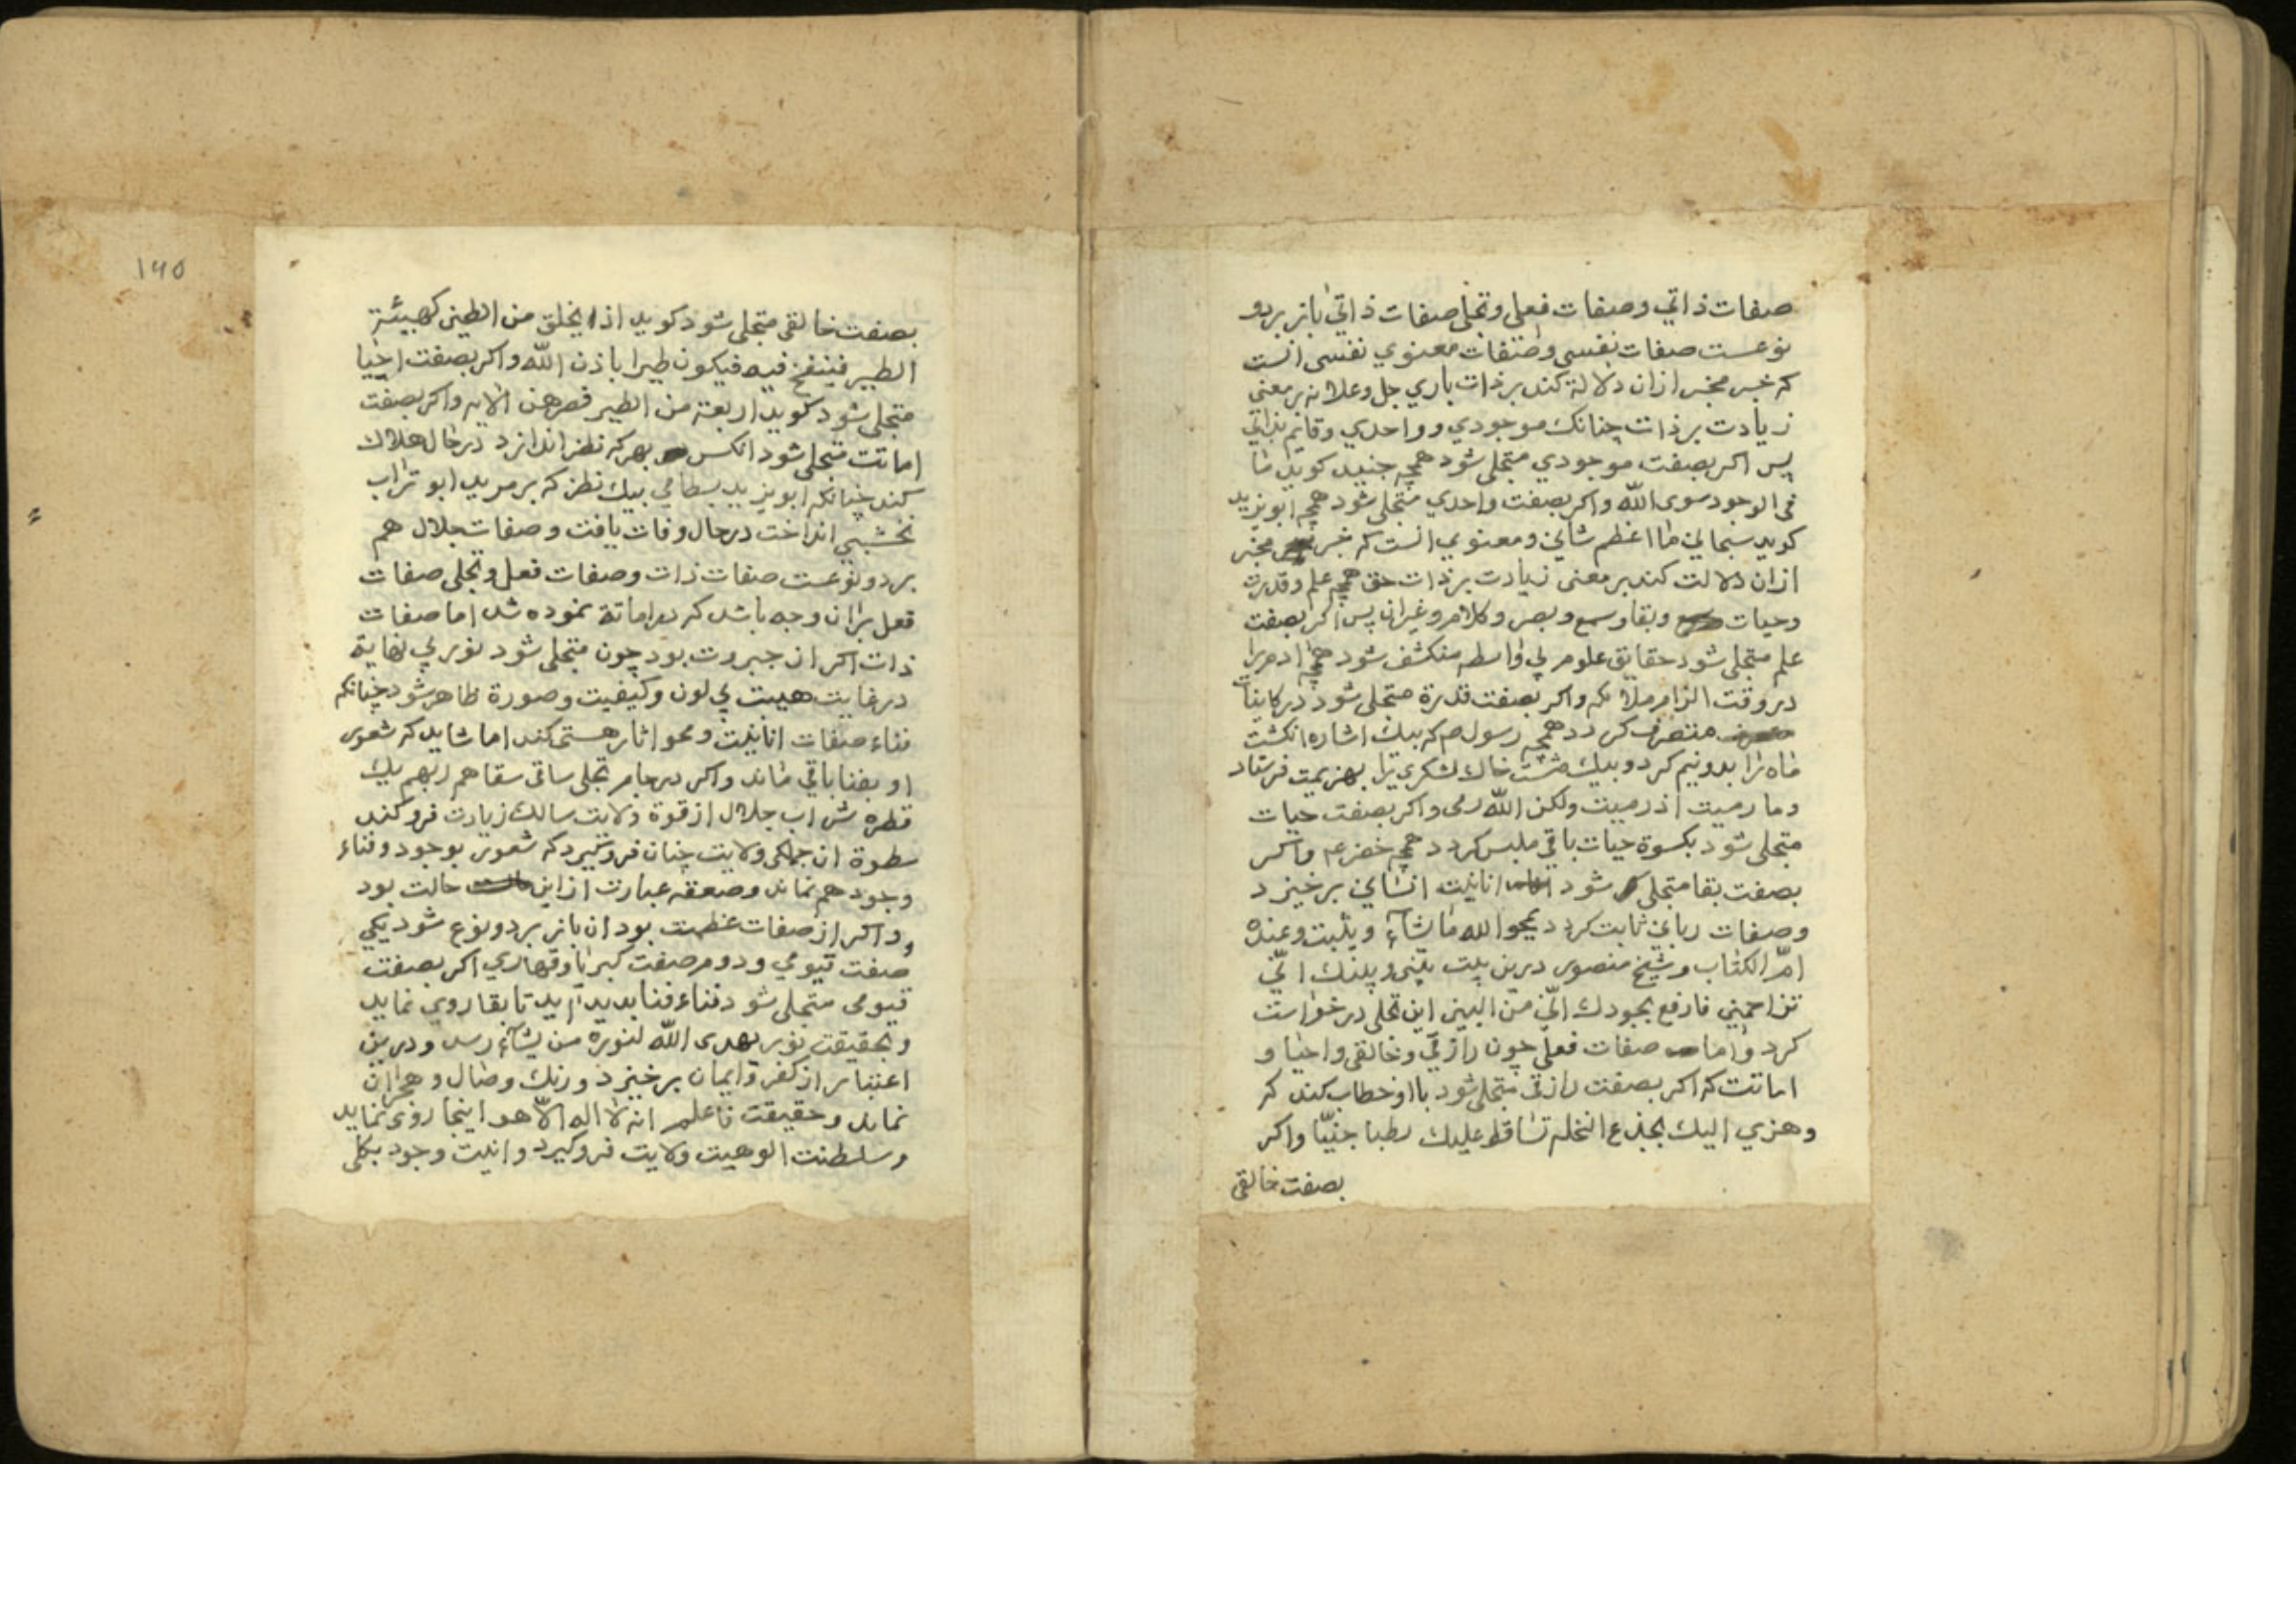 صفات ذاتي وصفات فعلي وتجلي صفات ذاتي باز بردو
نوعست صفات نفسي وصفات معنوي نفسي انست
كه خبر مخبر ازان دلالة كند بر ذات باري جل وعلا نه بر معنى
زيادت بر ذات چنانك موجودي وواحدي وقايم بذاتي
پس اكر بصفت موجودي متجلي شود همچه جنيد كويد ما
فى الوجود سوى الله واكر بصفت واحدي متجلي شود همچه ابويزيد
كويد سبحاني ما اعظم شاني ومعنوي انست كه خبر مخبر
ازان دلالت كند بر معنى زيادت بر ذات حق همچه علم وقدرت
وحيات وبقا وسمع وبصر وكلام وغيران پس اكر بصفت
علم متجلي شود حقايق علوم بي واسطه منكشف شود همچه ادم را
در وقت الزام ملائكه واكر بصفت قدرة متجلي شود در كاينات
متصرف كردد همچه رسول صم كه بيك اشاره انكشت
ماه را بدونيم كرد وبيك مشت خاك لشكري را بهزيمت فرستاد
وما رميت اذ رميت ولكن الله رمى واكر بصفت حيات
متجلي شود بكسوة حيات باقي ملبس كردد همچه خضر عم واكر
بصفت بقا متجلي شود انانيت انساني برخيزد
وصفات رباني ثابت كردد يمحو الله ما يشاء ويثبت وعنده
ام الكتاب وشيخ منصور درين بيت بيني وبينك اني
تزاحمني فارفع بجودك اني من البين اين تجلي درخواست
كرد واما صفات فعلي چون رازقي وخالقي واحيا و
اماتت كه اكر بصفت رازقي متجلي شود با او خطاب كند كه
وهزي اليك بجذع النخلة تساقط عليك رطبا جنيا واكر
بصفت خالقي
١٩٥
بصفت خالقي متجلي شود كويد اذ يخلق من الطين كهيئة
الطير فينفخ فيه فيكون طيرا باذن الله واكر بصفت احيا
متجلي شود كويد اربعة من الطير فصرهن الايه واكر بصفت
اماتت متجلي شود انكس بهركه نظر اندازد در حال هلاك
كند چنانكه ابويزيد بسطامي بيك نظر كه بر مريد ابو تراب
نخشبي انداخت در حال وفات يافت وصفات جلال هم
بردو نوعست صفات ذات وصفات فعل وتجلي صفات
فعل بران وجه باشد كه در اماتة نموده شد اما صفات
ذات اكر از جبروت بود چون متجلي شود نوري بي نهاية
در غايت هيبت بي لون وكيفيت وصورة ظاهر شود چنانكه
فناء صفات انانيت ومحو اثار هستي كند اما شايد كه شعور
او بفنا باقي ماند واكر در جام تجلي ساقي سقاهم ربهم يك
قطره شراب جلال از قوة ولايت سالك زيادت فرو كند
سطوة ان جملكي ولايت چنان فرو كيرد كه شعور بوجود وفناء
وجود هم نماند وصعقه عبارت ازاين حالت بود
واكر از صفات عظمت بود ان باز بردو نوع شود يكي
صفت قيومي ودوم صفت كبريا وقهاري اكر بصفت
قيومي متجلي شود فناء فنا پديد آيد تا بقا روي نمايد
وبحقيقت نور يهدى الله لنوره من يشاء رسد ودرين
اعتبار از كفر وايمان برخيزد ورنك وصال وهجران
نماند وحقيقت فاعلم انه لا اله الا هو اينجا روى نمايد
وسلطنت الوهيت ولايت فرو كيرد وانيت وجود بكلي